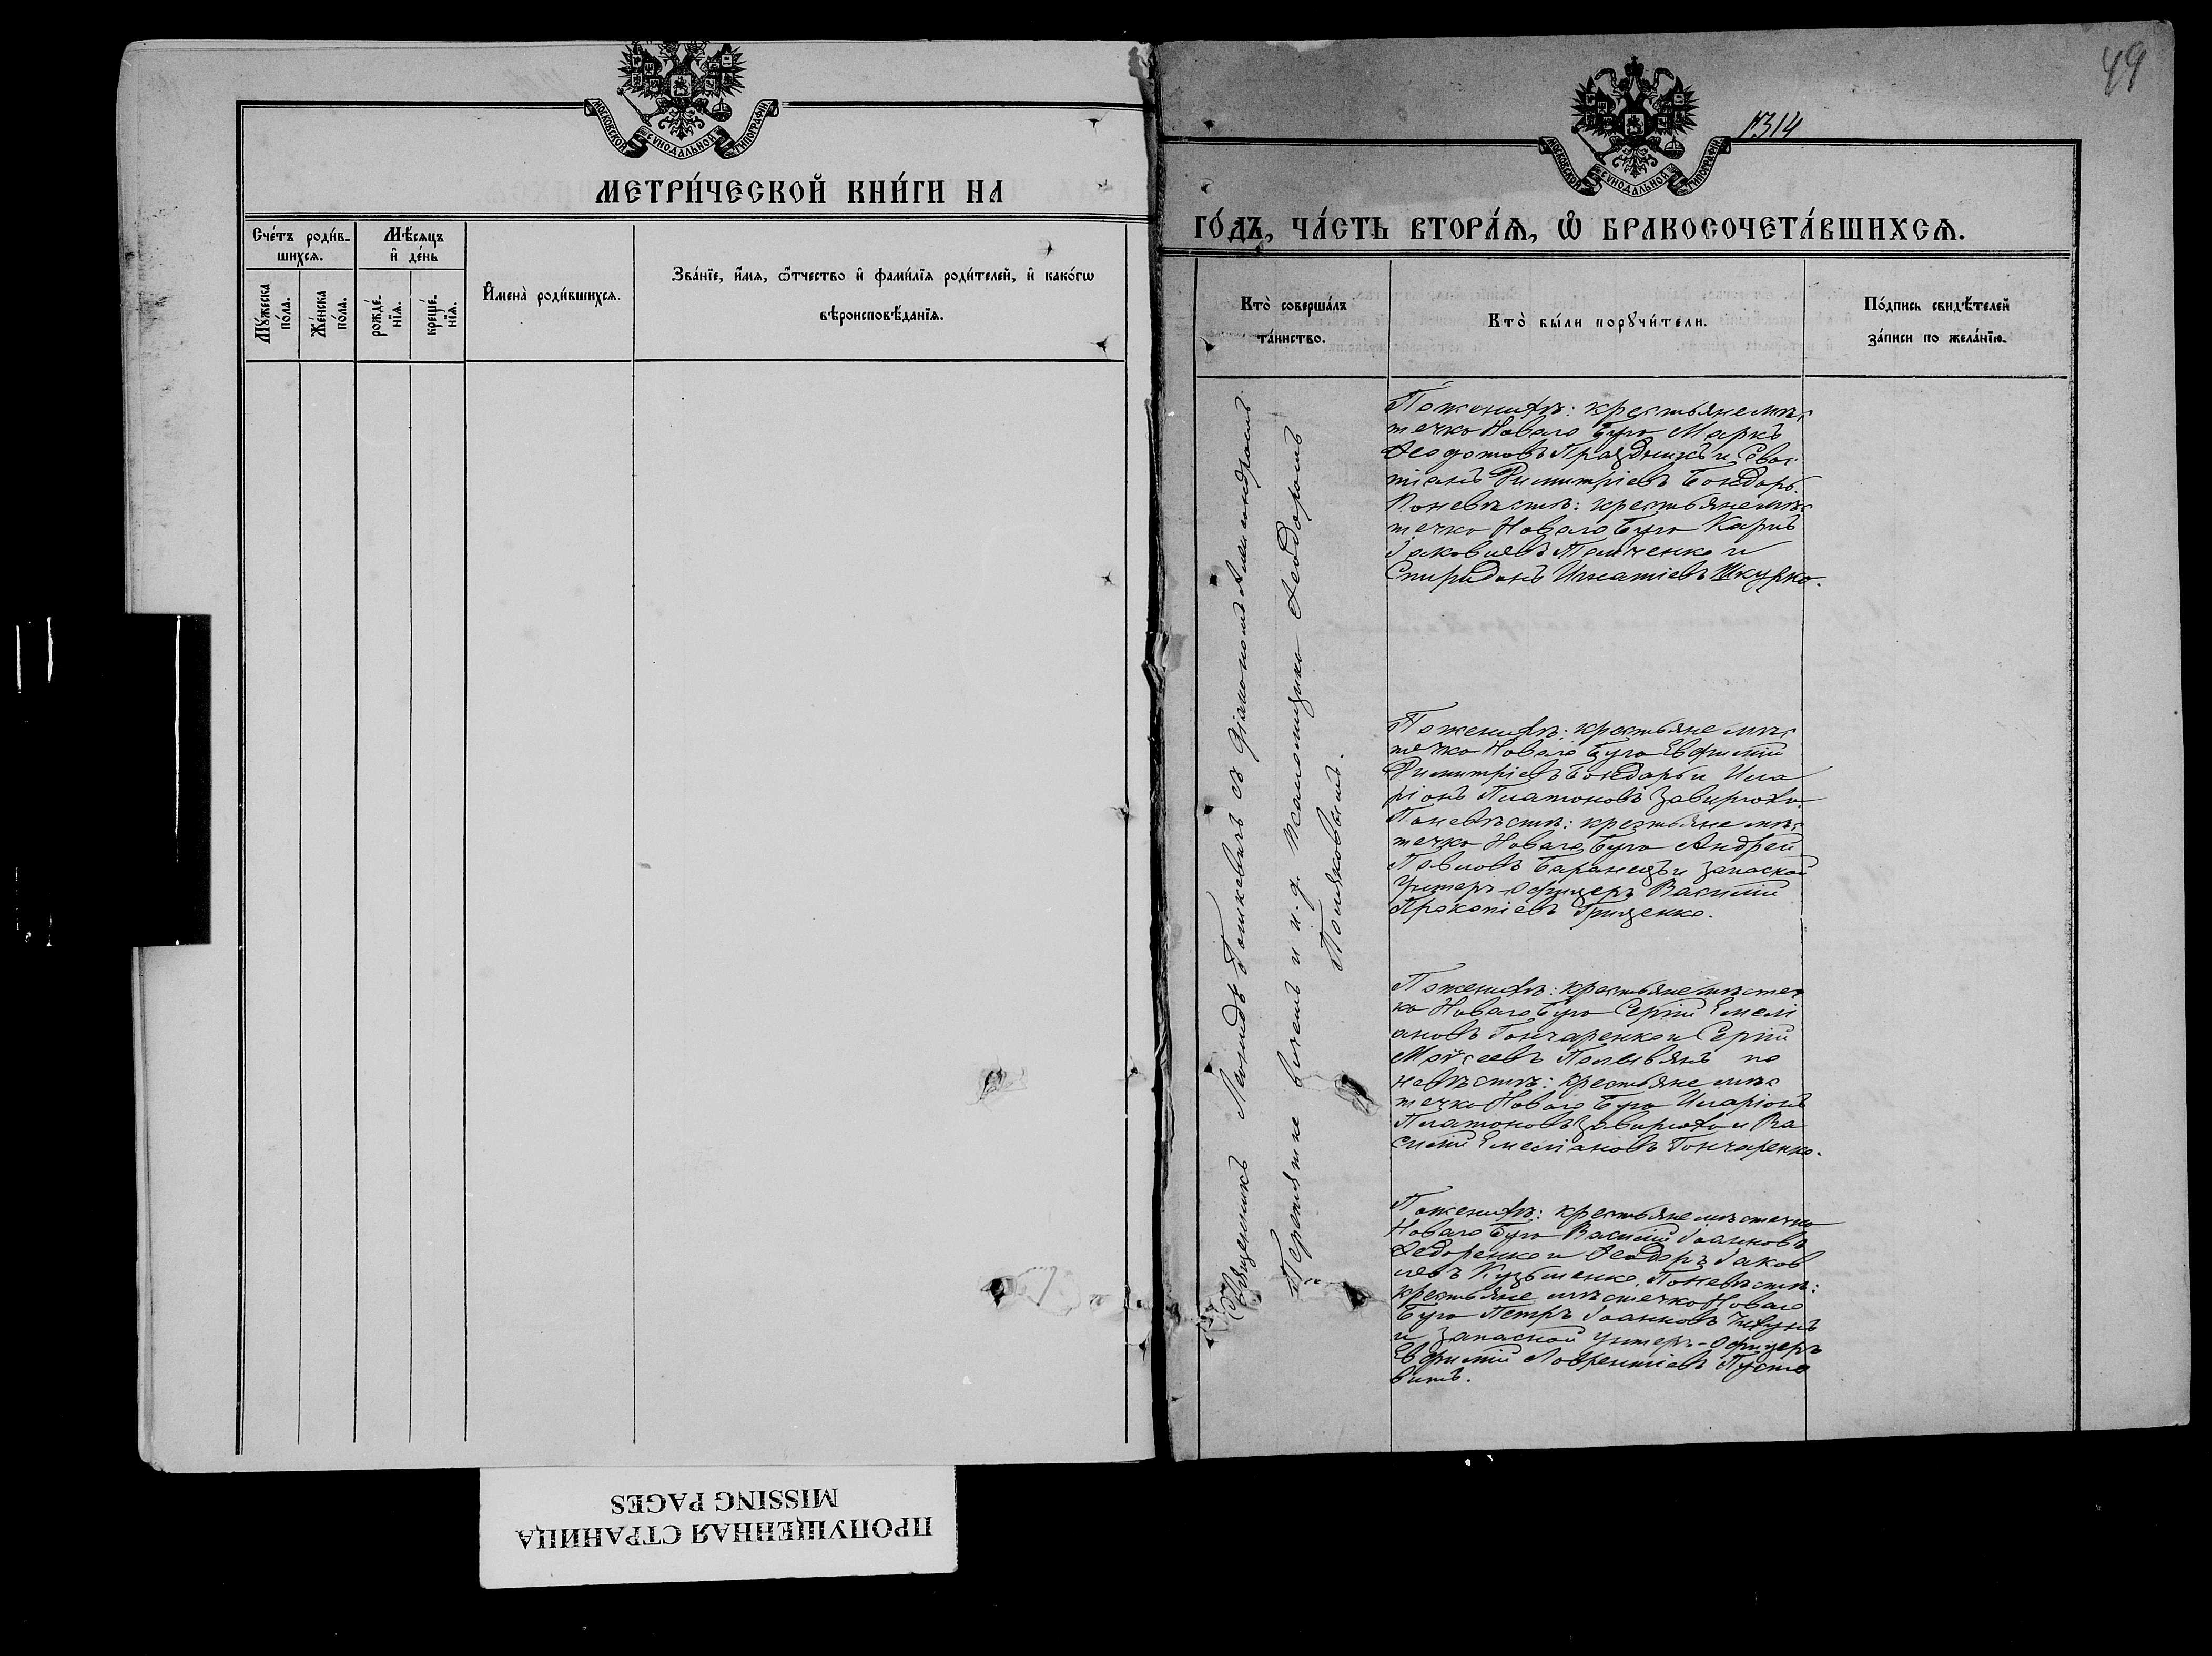 МОСКОВСКОЙ СУНОДАЛЬНОЙ ТИПОГРАФИИ
МЕТРИ́ЧЕСКОЙ КНИ́ГИ НА
Сче́тъ роди́в-
шихсѧ.
Мѣ́сѧцъ
и҆ де́нь
Му́жеска
по́ла.
Же́нска
по́ла.
рожде́-
нїѧ.
креще́-
нїѧ.
И҆мена̀ роди́вшихсѧ.
Зва́нїе, и҆́мѧ, ѻ҆́тчество и҆ фами́лїѧ роди́телей, и҆ како́гѡ
вѣроисповѣ́данїѧ.
49
1314
МОСКОВСКОЙ СУНОДАЛЬНОЙ ТИПОГРАФИИ
ГО́ДЪ, ЧА́СТЬ ВТОРА́Ѧ, Ѡ҆ БРАКОСОЧЕТА́ВШИХСѦ.
Кто̀ соверша́лъ
та́инство.
Кто̀ бы́ли порꙋчи́тели.
По́дпись свидѣ́телей
за́писи по жела́нїю.
Священникъ Леонидъ Гошкевичъ съ діакономъ Александромъ
Перетятке вичемъ и и. д. псаломщика Ѳеодоромъ
Поляковымъ.
По женихѣ: крестьяне мѣс
течка Новаго Буга Маркъ
Ѳеодотовъ Праздникъ и Сева
тіанъ Димитріевъ Бондарь.
По невѣстѣ: крестьяне мѣс
течка Новаго Буга Карпъ
Іаковлевъ Панченко и
Спиридонъ Игнатіевъ Шкурко.
По женихѣ: крестьяне мѣс
течка Новаго Буга Евфимій
Димитріевъ Бондарь и Ила
ріонъ Платоновъ Завирюха.
По невѣстѣ: крестьяне мѣс
течка Новаго Буга Андрей
Павловъ Баранецъ и запаской
Унтеръ-Офицеръ Василій
Прокопіевъ Грищенко.
По женихѣ: крестьяне мѣстеч
ка Новаго Буга Сергій Емелі
ановъ Гончаренко и Сергій
Моѵсеевъ Полывянъ по
невѣстѣ: крестьяне мѣс
течка Новаго Буга Иларіонъ
Платоновъ Завирюха и Ва
силій Емеліановъ Гончаренко.
По женихѣ: крестьяне мѣстечка
Новаго Буга Василій Іоанновъ
Ѳедоренко и Ѳеодоръ Іаков
левъ Кузьменко. По невѣстѣ:
крестьяне мѣстечка Новаго
Буга Петръ Іоанновъ
и запасной унтеръ-Офицеръ
Евфимій Лаврентіевъ Пусто
витъ.
ПРОПУЩЕННАЯ СТРАНИЦА
MISSING PAGES